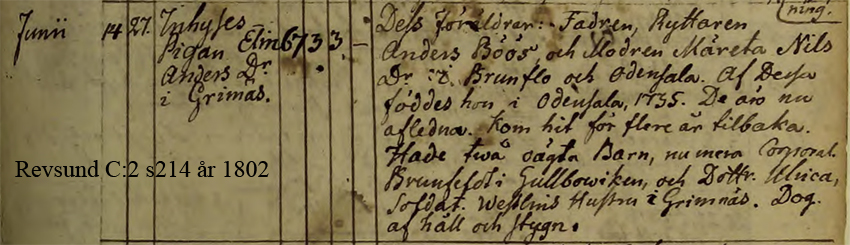 ning.
Junii 14 27. Inhyses
Pigan Elin 67 3 3. —
Anders Dr
i Grimas.
Dess föräldrar: Fadren, Ryttaren
Anders Böös, och Modren Märeta Nils
Dr i Brunflo och Odensala. Af Dessa
föddes hon i Odensala, 1735. De äro nu
afledna. Kom hit för flere år tilbaka.
Hade twå oägta Barn, nu mera Corporal
i Gullbowiken, och Dottr. Ulrica,
Soldat. Hustru i Grimnäs. Dog
af håll och stygn.
Revsund C:2 s214 år 1802